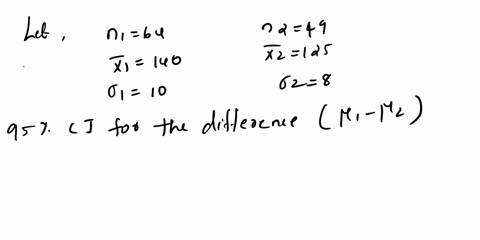 Let, n1 = 64 n2 = 49
x̄1 = 140 x̄2 = 125
σ1 = 10 σ2 = 8
95% CI for the difference (μ1 - μ2)